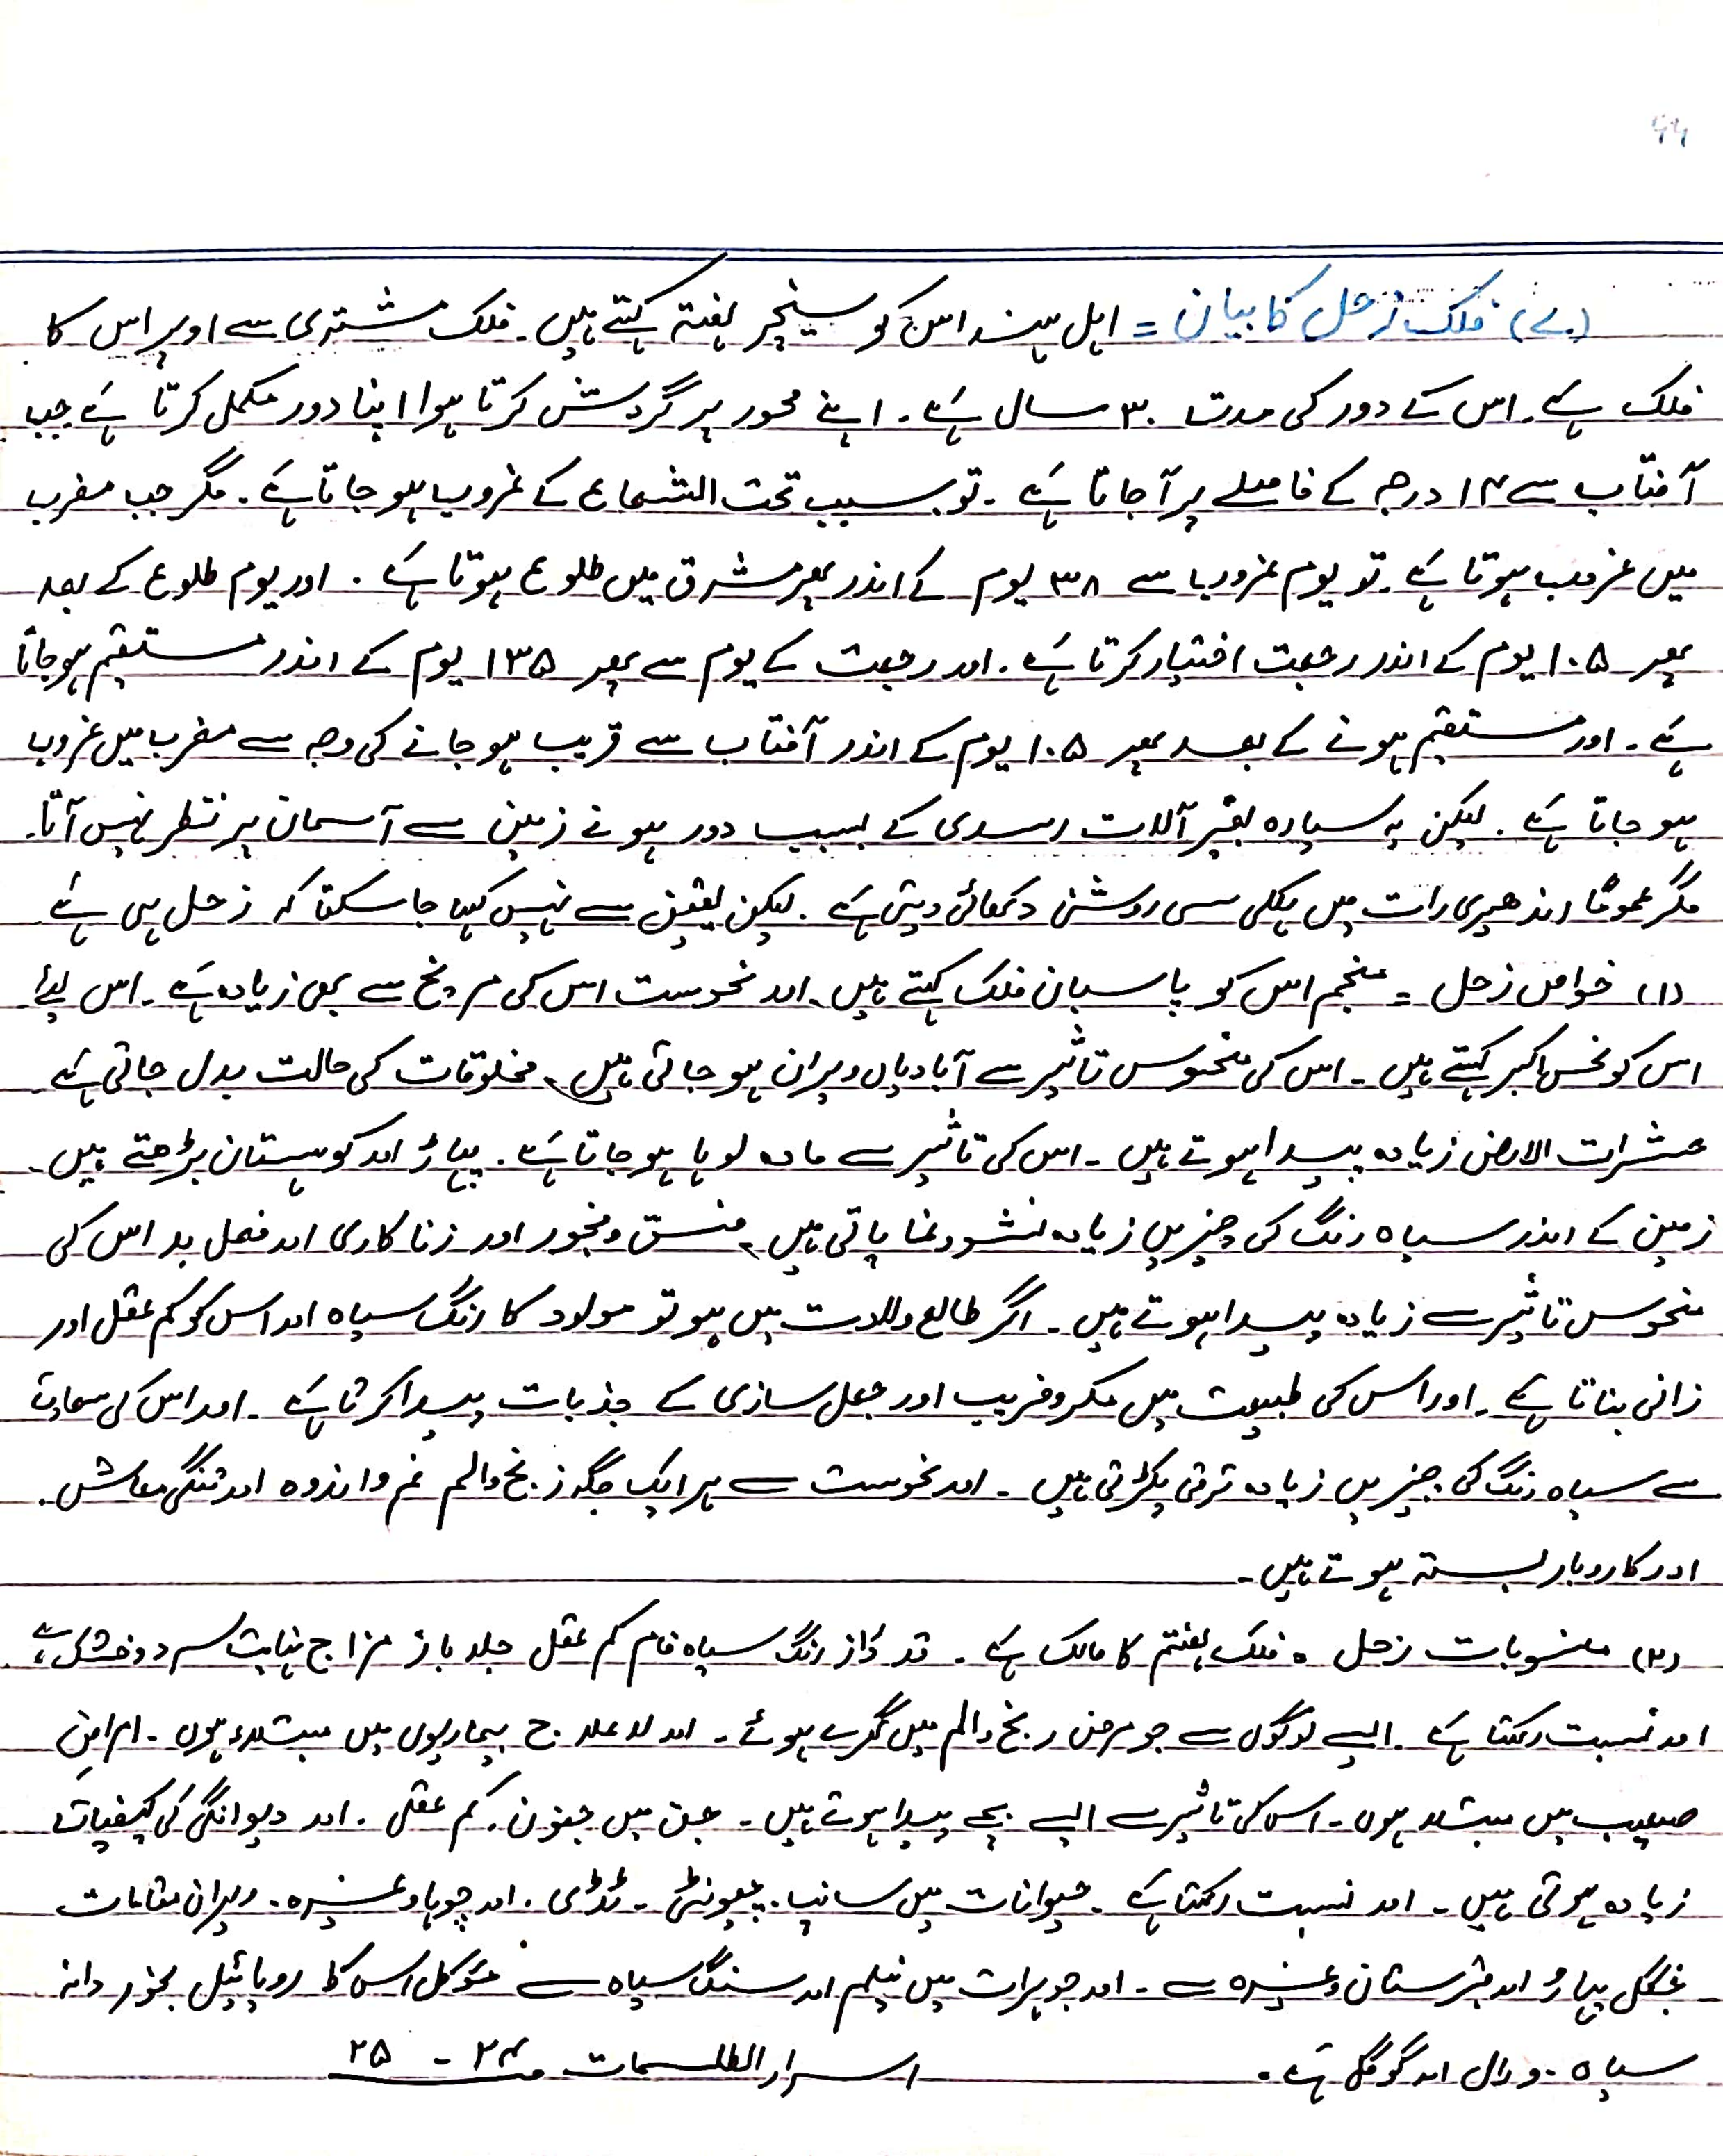 ۴۴
(۷) فلک زحل کا بیان = اہل ہند اس کو سینچر ہفتہ کہتے ہیں۔ فلک مشتری سے اوپر اس کا
فلک ہے۔ اس کے دور کی مدت ۳۰ سال ہے۔ اپنے محور پر گردش کرتا ہوا اپنا دور مکمل کرتا ہے جب
آفتاب سے ۱۴ درجہ کے فاصلے پر آجاتا ہے۔ تو بسبب تحت الشعاع کے غروب ہوجاتا ہے۔ مگر جب مغرب
میں غروب ہوتا ہے۔ تو یوم غروب سے ۳۸ یوم کے اندر پھر مشرق میں طلوع ہوتا ہے۔ اور یوم طلوع کے بعد
پھر ۱۰۵ یوم کے اندر رجعت اختیار کرتا ہے۔ اور رجعت کے یوم سے پھر ۱۳۵ یوم کے اندر مستقیم ہوجاتا
ہے۔ اور مستقیم ہونے کے بعد پھر ۱۰۵ یوم کے اندر آفتاب سے قریب ہوجانے کی وجہ سے مغرب میں غروب
ہو جاتا ہے۔ لیکن یہ سیارہ بغیر آلات رسدی کے بسبب دور ہونے زمین سے آسمان پر نظر نہیں آتا۔
مگر عموماً اندھیری رات میں ہلکی سی روشنی دکھائی دیتی ہے۔ لیکن یقین سے نہیں کہا جاسکتا کہ زحل ہی ہے
(۱) خواص زحل = منجم اس کو پاسبان فلک کہتے ہیں۔ اور نحوست اس کی مریخ سے بھی زیادہ ہے۔ اس لیئے
اس کو نحس اکبر کہتے ہیں۔ اس کی منحوس تاثیر سے آبادیاں ویران ہوجاتی ہیں، مخلوقات کی حالت بدل جاتی ہے
حشرات الارض زیادہ پیدا ہوتے ہیں۔ اس کی تاثیر سے مادہ لوہا ہوجاتا ہے۔ پہاڑ اور کوہستان بڑھتے ہیں۔
زمین کے اندر سیاہ رنگ کی چیزیں زیادہ نشوونما پاتی ہیں، فسق و فجور اور زنا کاری اور فعل بد اس کی
منحوس تاثیر سے زیادہ پیدا ہوتے ہیں۔ اگر طالع ولادت میں ہو تو مولود کا رنگ سیاہ اور اس کو کم عقل اور
زانی بناتا ہے۔ اور اس کی طبیعت میں مکر و فریب اور جعل سازی کے جذبات پیدا کرتا ہے۔ اور اس کی سعادت
سے سیاہ رنگ کی چیزیں زیادہ ترقی پکڑتی ہیں۔ اور نحوست سے ہر ایک جگہ رنج والم غم و اندوہ اور تنگی معاش۔
اور کاروبار بستہ ہوتے ہیں۔
(۲) منسوبات زحل = فلک ہفتم کا مالک ہے۔ قد دراز رنگ سیاہ فام کم عقل جلد باز مزاج نہایت سرد و خشک ہے
اور نسبت رکھتا ہے۔ ایسے لوگوں سے جو مرض رنج والم میں گھرے ہوئے۔ اور لا علاج بیماریوں میں مبتلاء ہوں۔ امراض
صعیب میں مبتلا ہوں۔ اس کی تاثیر سے ایسے بچے پیدا ہوتے ہیں۔ جن میں جنون۔ کم عقلی۔ اور دیوانگی کی کیفیات
زیادہ ہوتی ہیں۔ اور نسبت رکھتا ہے۔ حیوانات میں سانپ۔ چیونٹی۔ ٹڈی۔ اور چوہا وغیرہ۔ ویران مقامات
جنگل پہاڑ اور قبرستان وغیرہ سے۔ اور جوہرات میں نیلم اور سنگ سیاہ سے مؤکل اس کا روبائیل بخور دانہ
سیاہ۔ و رال اور گوگل ہے۔ اسرار الطلسمات ص ۲۴ - ۲۵